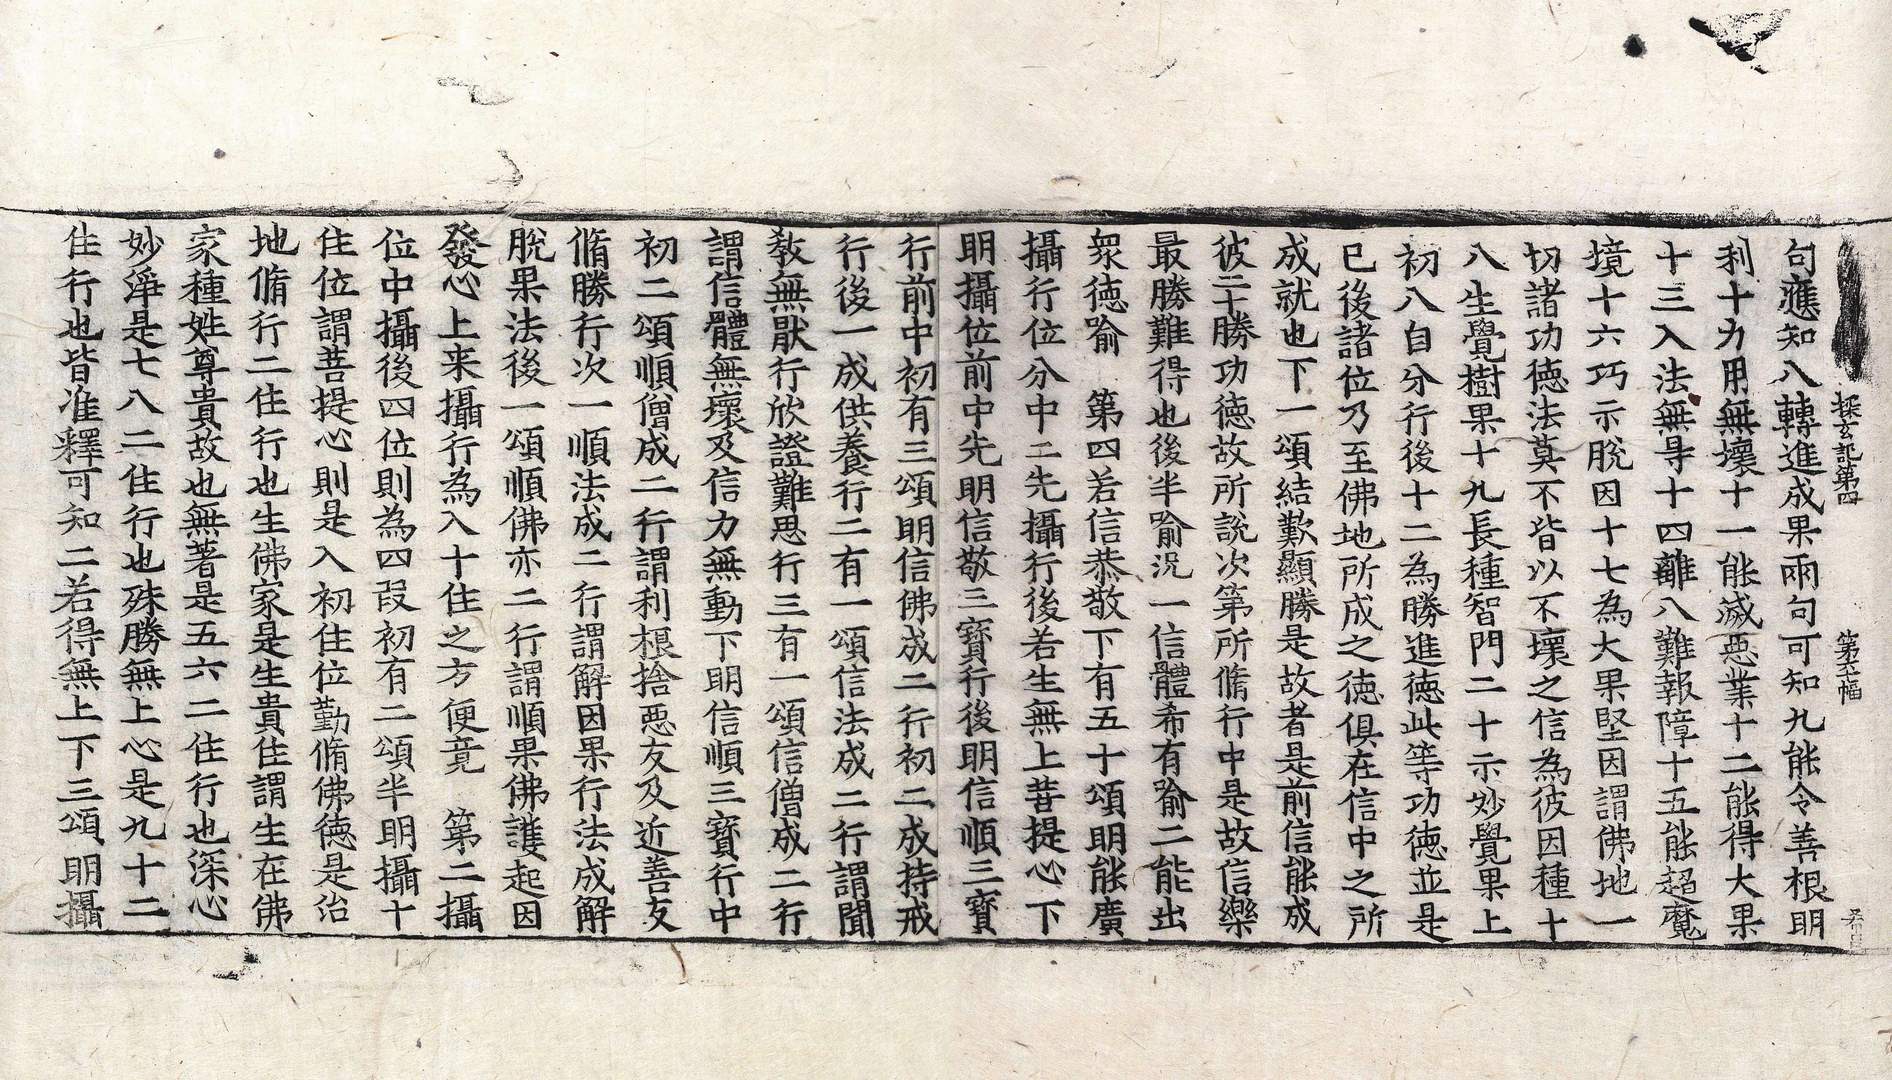 探玄記第四 第六幅
句應知八轉進成果兩句可知九能令善根明
利十力用無壞十一能滅惡業十二能得大果
十三入法無㝵十四離八難報障十五能超魔
境十六巧示脫因十七為大果堅因謂佛地一
切諸功德法莫不皆以不壞之信為彼因種十
八生覺樹果十九長種智門二十示妙覺果上
初八自分行後十二為勝進德此等功德並是
已後諸位乃至佛地所成之德俱在信中之所
成就也下一頌結歎顯勝是故者是前信能成
彼二十勝功德故所說次第所脩行中是故信樂
最勝難得也後半喻況一信體希有喻二能出
眾德喻 第四若信恭敬下有五十頌明能廣
攝行位分中二先攝行後若生無上菩提心下
明攝位前中先明信敬三寶行後明信順三寶
行前中初有三頌明信佛成二行初二成持戒
行後一成供養行二有一頌信法成二行謂聞
教無猒行欣證難思行三有一頌信僧成二行
謂信體無壞及信力無動下明信順三寶行中
初二頌順僧成二行謂利根捨惡友及近善友
脩勝行次一順法成二行謂解因果行法成解
脫果法後一頌順佛亦二行謂順果佛護起因
發心上来攝行為入十住之方便竟 第二攝
位中攝後四位則為四段初有二頌半明攝十
住位謂菩提心則是入初住位勤脩佛德是治
地脩行二住行也生佛家是生貴住謂生在佛
家種姓尊貴故也無著是五六二住行也深心
妙淨是七八二住行也殊勝無上心是九十二
住行也皆准釋可知二若得無上下三頌明攝